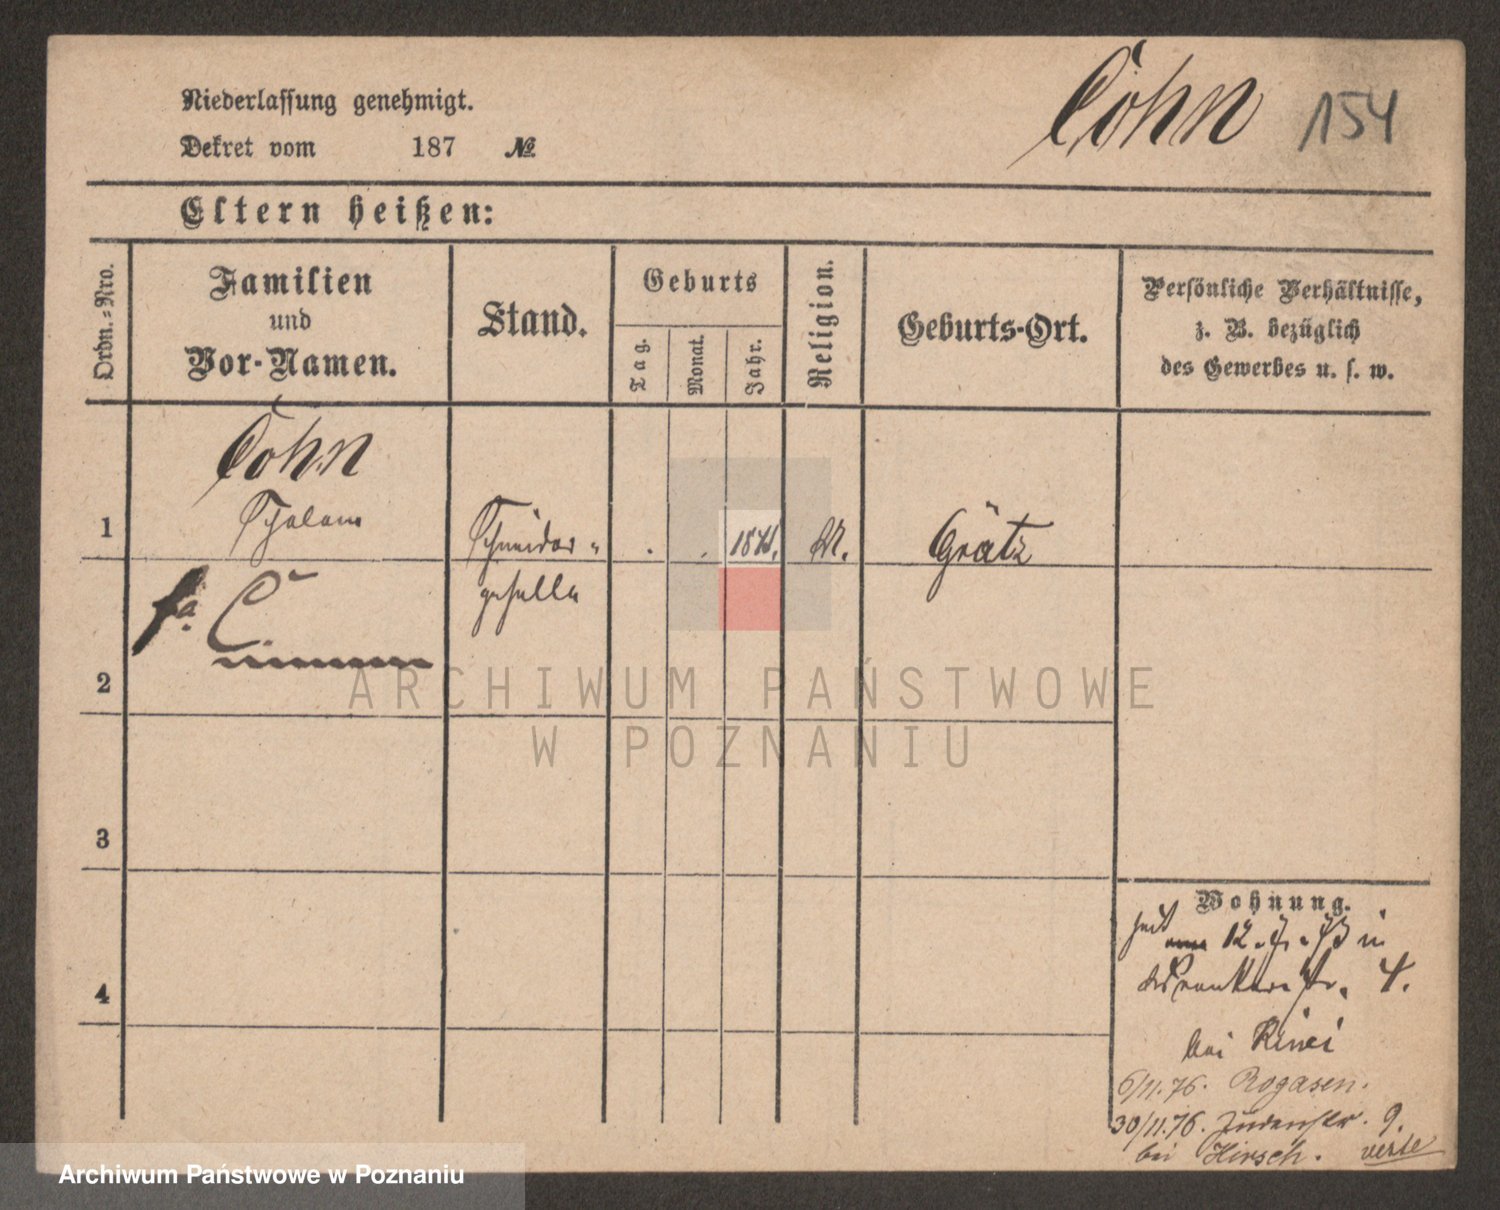 Niederlassung genehmigt.
Dekret vom 187 №
Cohn 154
Eltern heißen:
Ordn.-Nro.
Familien
und
Vor-Namen.
Stand.
Geburts
Tag.
Monat.
Jahr.
Religion.
Geburts-Ort.
Persönliche Verhältnisse,
z. B. bezüglich
des Gewerbes u. s. w.
Cohn
1 Schneider- Grätz
geselle
2
3
4
Wohnung.
seit 12. 7. 73 in
4.
bei
6/11.76. Rogasen.
30/11.76. Judenstr. 9.
bei Hirsch. verte
ARCHIWUM PAŃSTWOWE
W POZNANIU
Archiwum Państwowe w Poznaniu